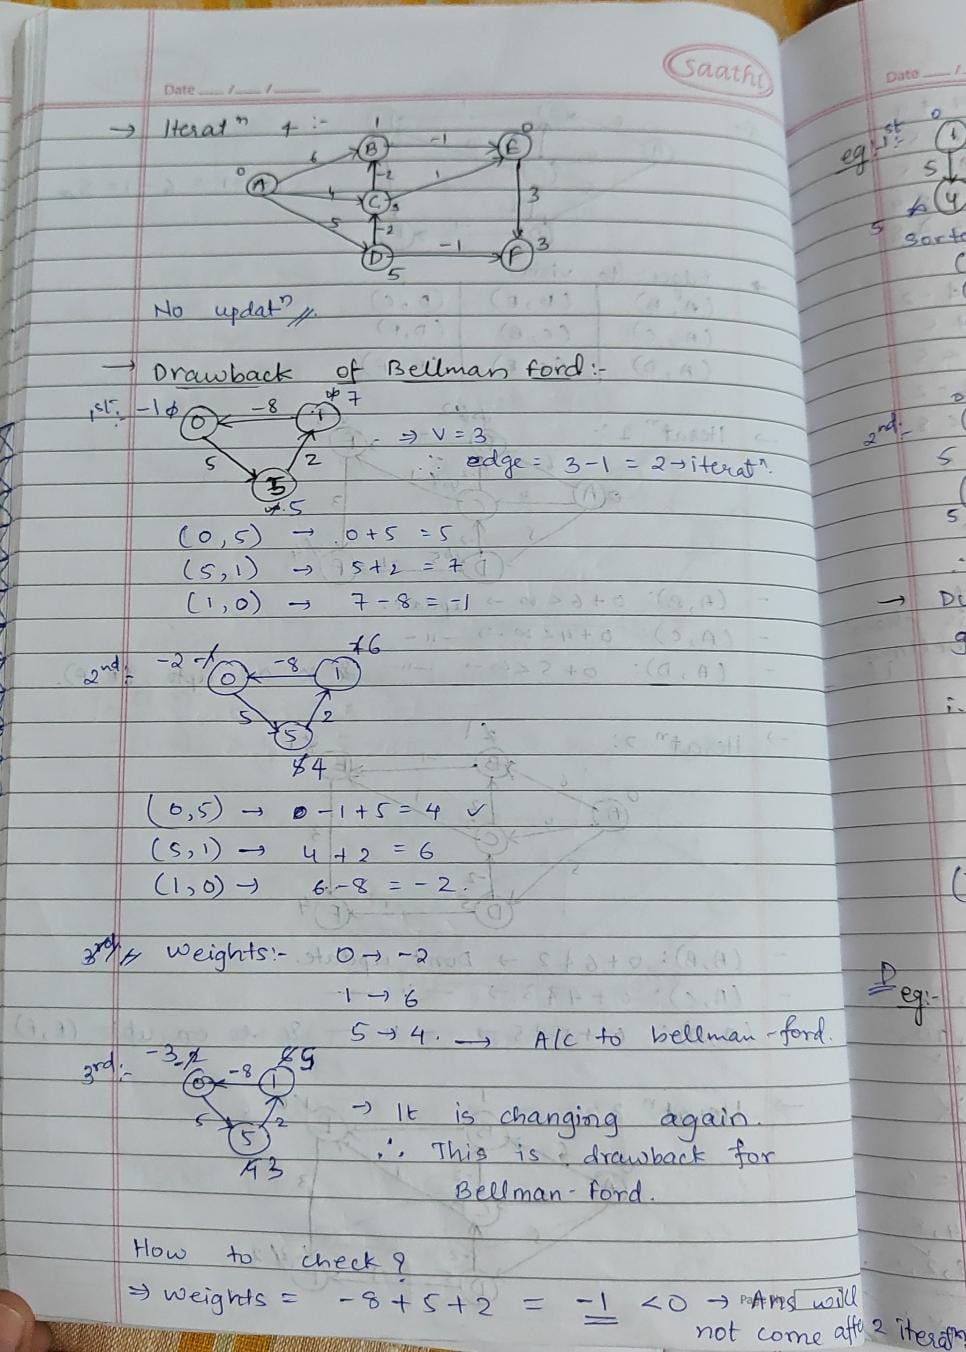 saathi
Date __/__/____
→ Iteratⁿ 4 :-
1
0
B -1 E
6
0 A 4 C 3 1
-2
3
5 -2
D -1 F 3
5
No updatⁿ //.
→ Drawback of Bellman ford :-
1st :- -1 0 0 -8 1 ∞ 7
5 2
5
∞ 5
⇒ V = 3
∴ edge = 3-1 = 2 → iteratⁿ.
(0,5) → 0+5 = 5
(5,1) → 5+2 = 7
(1,0) → 7-8 = -1
2nd :- -2 -1 0 -8 1 7 6
5 2
5
5 4
(0,5) → 0 -1+5 = 4 ✓
(5,1) → 4+2 = 6
(1,0) → 6-8 = -2.
3rd // weights :- 0 → -2
1 → 6
5 → 4. → A/C to bellman-ford.
3rd :- -3 -2 0 -8 1 6 5
5 2
5
4 3
→ It is changing again.
∴ This is drawback for
Bellman-ford.
How to check ?
⇒ weights = -8+5+2 = -1 <0 → Ans will
not come after 2 iteratⁿ
Date __/
eg :- 1st 0
1
5
4
5
Sorte
2nd :-
5
5
→ Di
g
i.
D eg :-